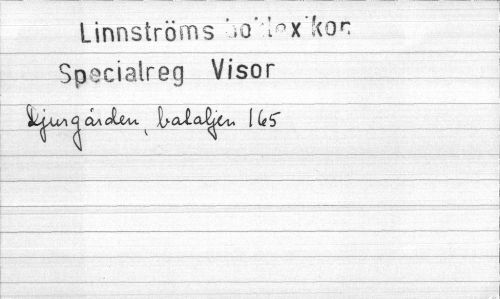 Linnströms boklexikon
Specialreg Visor
Djurgården, bataljen 165